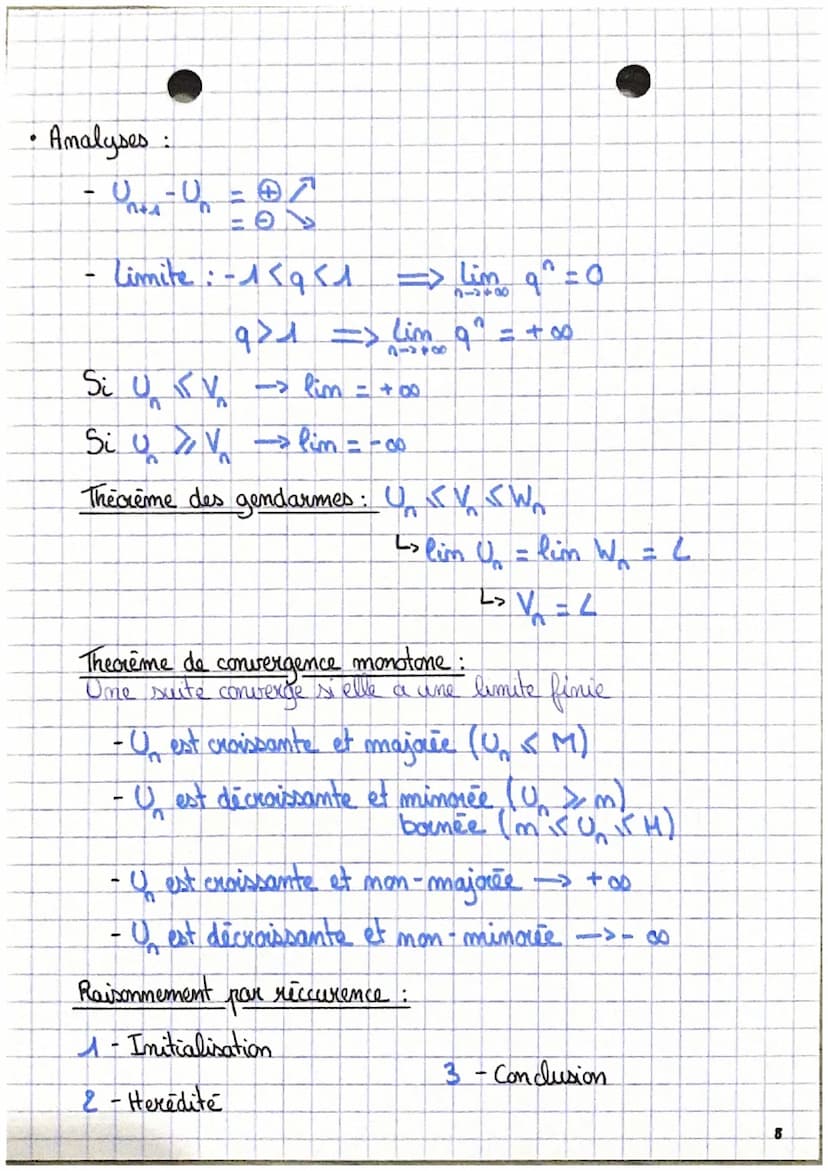 • Analyses :
- Uₙ₊₁ - Uₙ = ⊕ ↗
= ⊖ ↘
- Limite : -1 < q < 1 ⟹ lim n->+∞ qⁿ = 0
q > 1 ⟹ lim n->+∞ qⁿ = + ∞
Si Uₙ ⩽ Vₙ → lim = + ∞
Si Uₙ ⩾ Vₙ → lim = - ∞
Théorème des gendarmes : Uₙ ⩽ Vₙ ⩽ Wₙ
↳ lim Uₙ = lim Wₙ = L
↳ Vₙ = L
Theorème de convergence monotone :
Une suite converge si elle a une limite finie
- Uₙ est croissante et majorée (Uₙ ⩽ M)
- Uₙ est décroissante et minorée (Uₙ ⩾ m)
bornée (m ⩽ Uₙ ⩽ M)
- Uₙ est croissante et non-majorée → + ∞
- Uₙ est décroissante et non-minorée → - ∞
Raisonnement par réccurence :
1 - Initialisation
3 - Conclusion
2 - Herédité
8